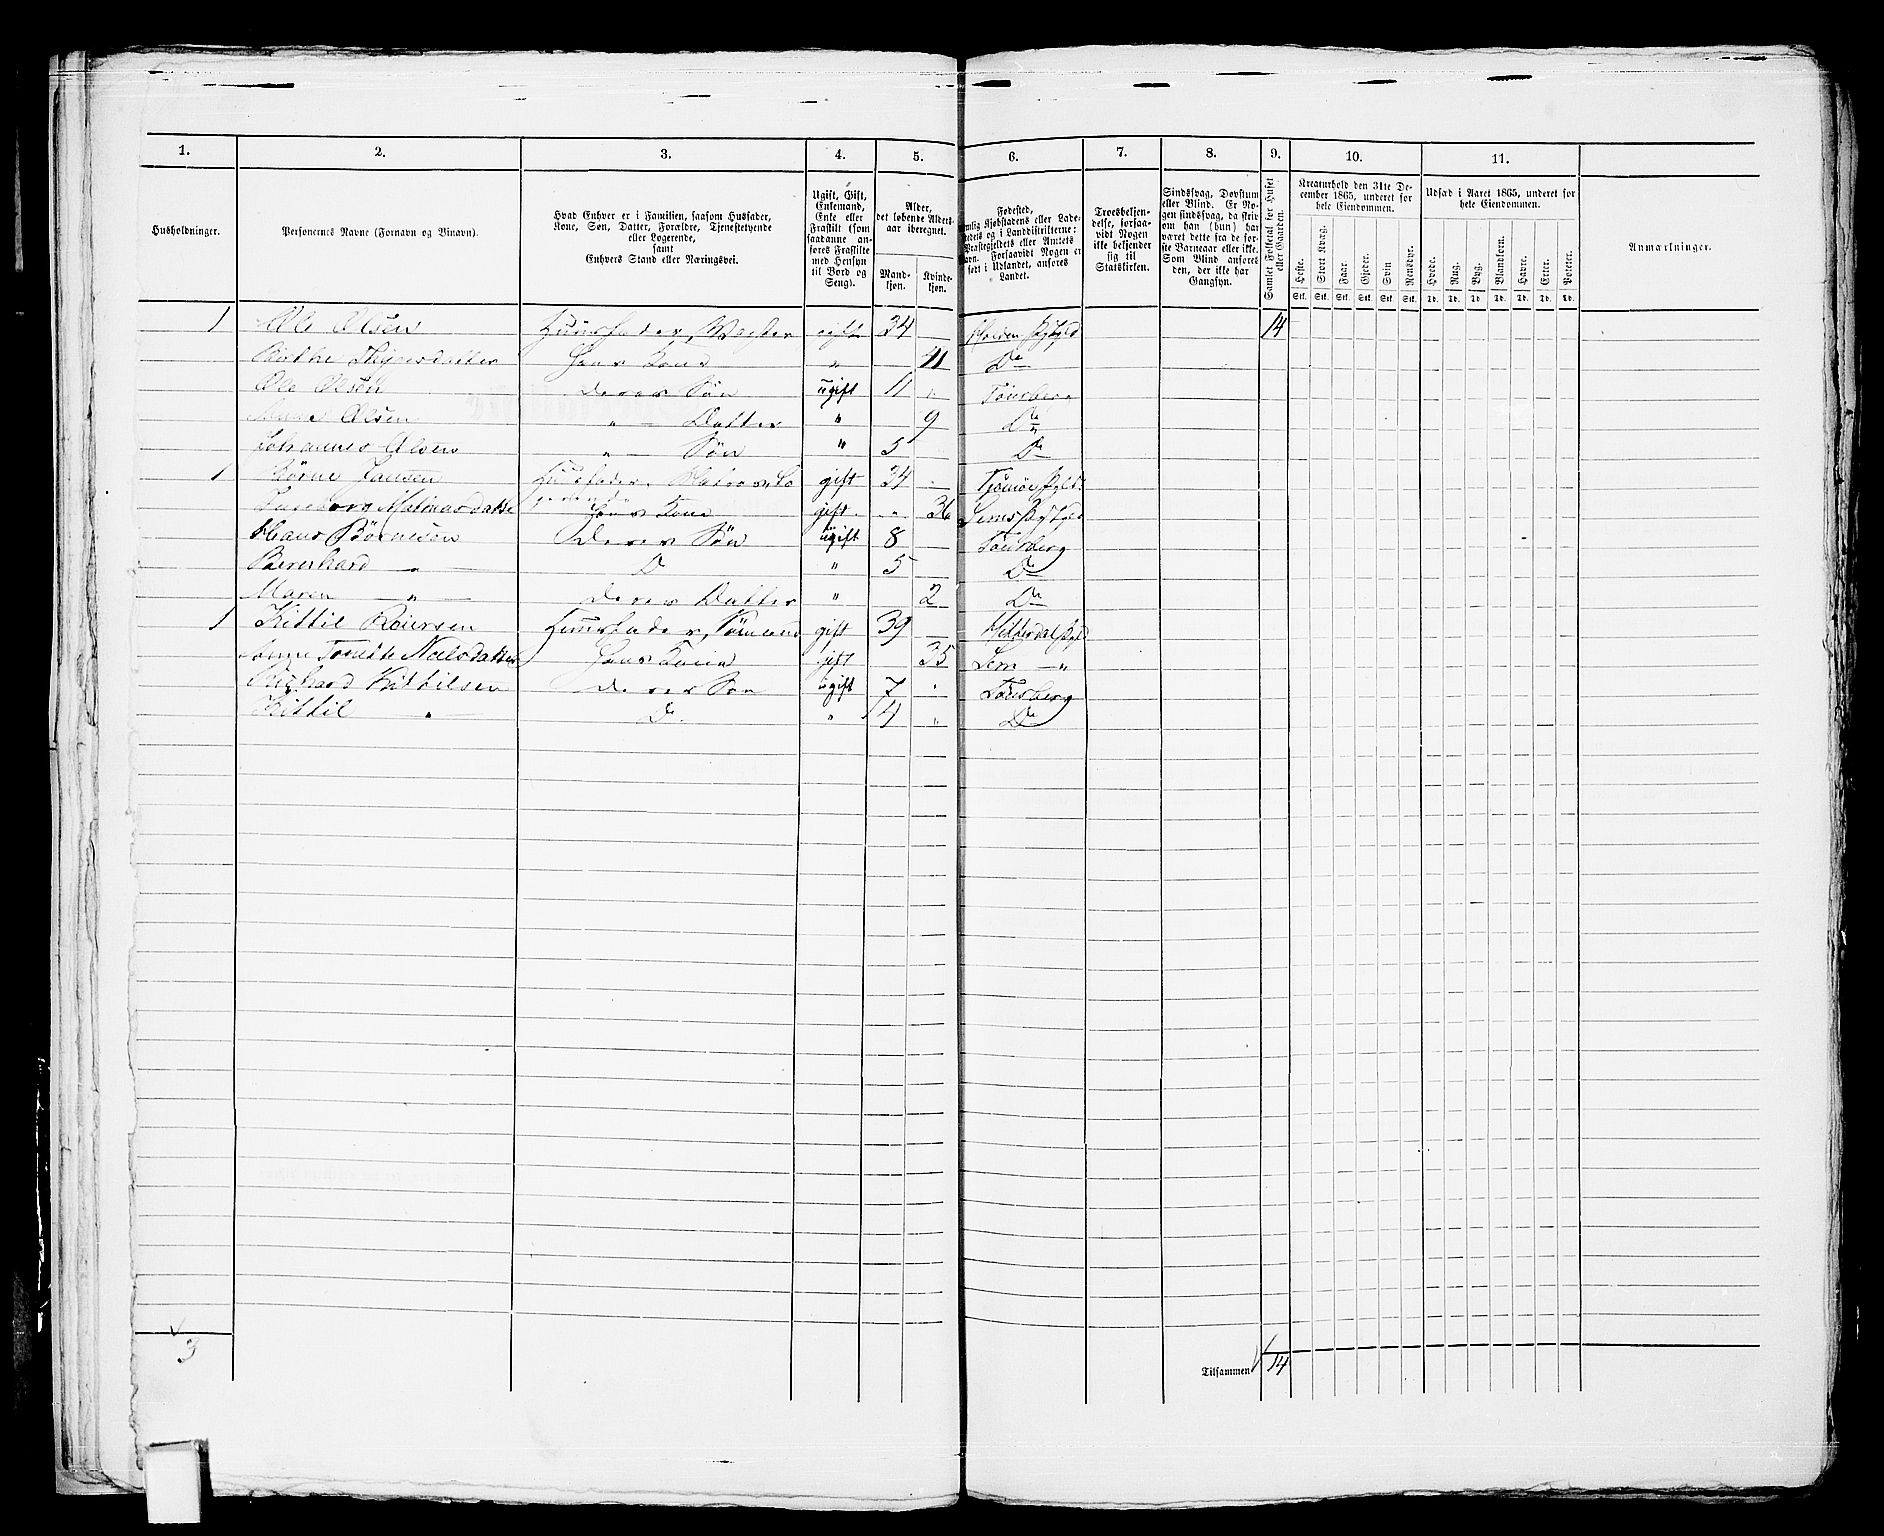 1. 2. 3. 4. 5. 6. 7. 8. 9. 10. 11.
Husholdninger.
Personernes Navne (Fornavn og Binavn).
Hvad Enhver er i Familien, saasom Husfader,
Kone, Søn, Datter, Forældre, Tjenestetyende
eller Logerende,
samt
Enhvers Stand eller Næringsvei.
Ugift, Gift,
Enkemand,
Enke eller
Fraskilt (som
saadanne an-
føres Fraskilte
med Hensyn
til Bord og
Seng).
Alder,
det løbende Alders-
aar iberegnet.
Mand-
kjøn.
Kvinde-
kjøn.
Fødested,
Kjøbstadens eller Lade-
stedets og i Landdistrikterne:
Præstegjeldets eller Amtets
Navn. Forsaavidt Nogen er
født i Udlandet, anføres
Landet.
Troesbekjen-
delse, forsaa-
vidt Nogen
ikke bekjender
sig til
Statskirken.
Sindssvag, Døvstum
eller Blind. Er No-
gen sindssvag, da skriv
om han (hun) har
været dette fra de før-
ste Barneaar eller ikke.
Som Blind anføres
den, der ikke har
Gangsyn.
Samlet Folketal for Huset
eller Gaarden.
Kreaturhold den 31te De-
cember 1865, underet for
hele Eiendommen.
Heste. Stort Kvæg. Faar. Gjeder. Svin Rensdyr.
Stk. Stk. Stk. Stk. Stk. Stk.
Udsæd i Aaret 1865, underet for
hele Eiendommen.
Hvede. Rug. Byg. Blandkorn. Havre. Erter. Poteter.
Td. Td. Td. Td. Td. Td. Td.
Anmærkninger.
1 Ole Olsen Huusfader, Vægter gift 34 Holden Prgjeld 14
Birthe Thygesdatter Hans Kone " 41 Do
Ole Olsen Deres Søn ugift 11 " Tønsberg
Olsen " — Datter " 9 Do
Johannes Olsen " — Søn " 5 Do
1 Børne Hansen Huusfader, Matros, Lo gift 34 Tjømøe Pgld.
gerende
Ingeborg Mathiasdatter Hans Kone gift " 36 Sems Prgjeld
Hans Børnesen Deres Søn ugift 8 Tønsberg
Bernhard — " — D " 5 Do
Maren — " — Deres Datter " 2 Do
1 Kittil Reiersen Huusfader, Sømand gift 39 Hitterdal Pgld
Anne Tonette Nielsdatter Hans Kone gift 35 Sem — "
Richard Kittilsen Deres Søn ugift 7 " Tønsberg
Kittil " Do " 4 " Do
3
Tilsammen 14